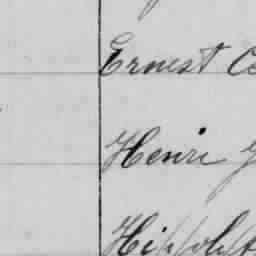 Ernest Ce
Henri
Hippolyt